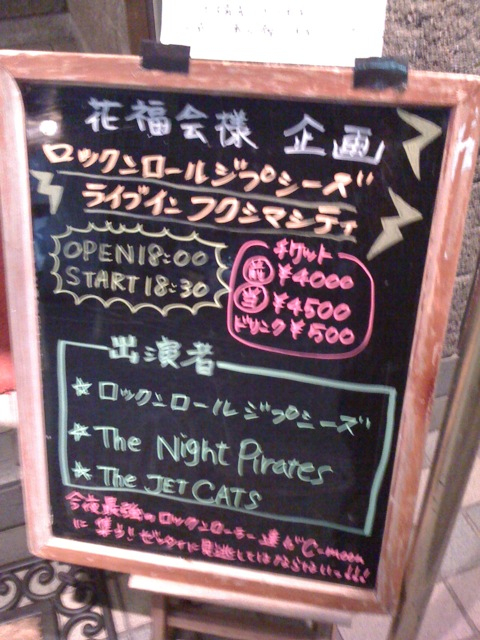 花福会様 企画
ロックンロールジプシーズ
ライブインフクシマシティ
OPEN 18:00
START 18:30
チケット
前 ¥4000
当 ¥4500
ドリンク ¥500
出演者
☆ ロックンロールジプシーズ
☆ The Night Pirates
☆ The JET CATS
今夜最強のロックンローラー達がC-moon
に集う!ゼッタイに見逃してはならはいっ!!!